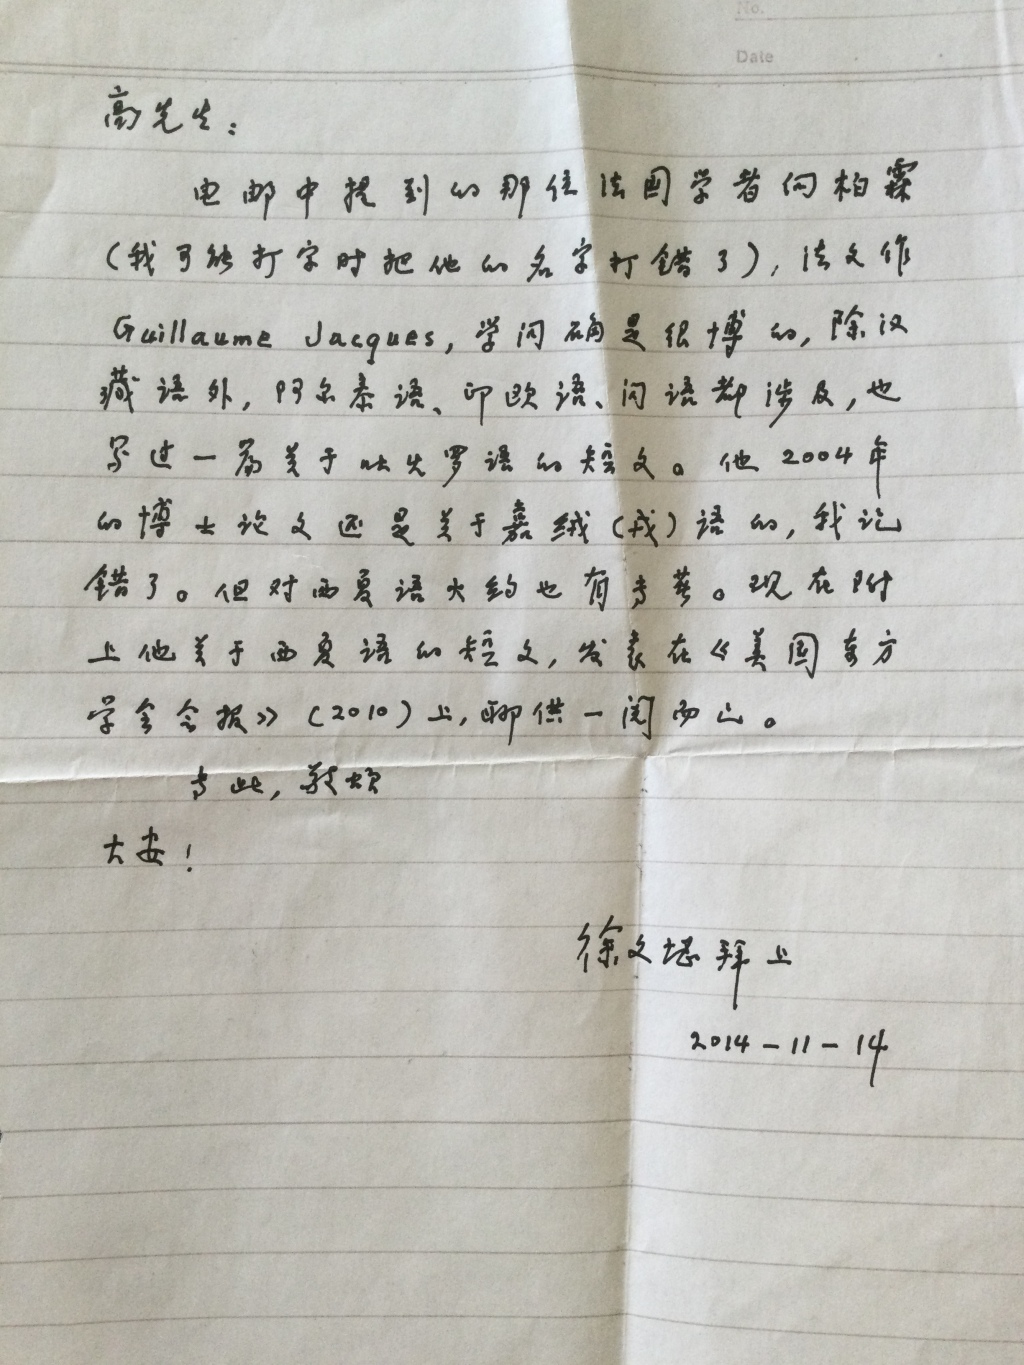 No.
Date
高先生:
电邮中提到的那位法国学者向柏霖
(我可能打字时把他的名字打错了),法文作
Guillaume Jacques,学问确是很博的,除汉
藏语外,阿尔泰语、印欧语、闪语都涉及,也
写过一篇关于吐火罗语的短文。他2004年
的博士论文还是关于嘉绒(戎)语的,我记
错了。但对西夏语大约也有专著。现在附
上他关于西夏语的短文,发表在《美国东方
学会会报》(2010)上,聊供一阅而已。
专此,敬颂
大安!
徐文堪拜上
2014-11-14